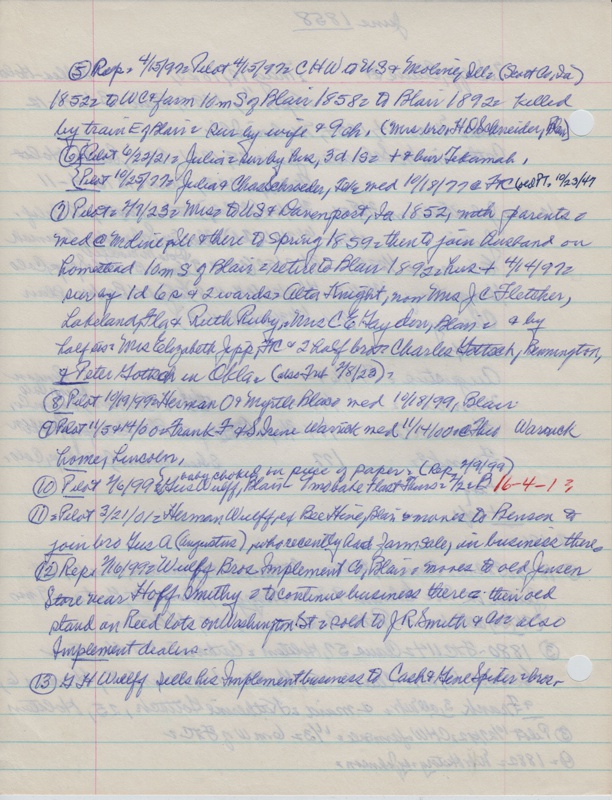 ⑤ Rep. 4/15/97 = Pilot 4/15/97 = C H W to US & Moline, Ill = (Scott Co, Ia)
1852 = to WC & farm 10 m S of Blair 1858 = to Blair 1892 = killed
by train E of Blair = sur by wife & 9 ch. (Mrs bro. H D Schneider, Blair)
⑥ Pilot 6/22/21 = Julia = sur by hus, 3d 1s = + & bur Tekamah.
Pilot 10/25/77 = Julia & Chas Schroeder, Tek med 10/18/77 @ FC
⑦ Pilot = 2/7/23 = Mrs = to US & Davenport, Ia 1852, with parents =
med @ Moline, Ill & there to Spring 1859 = then to join husband on
homestead 10 m S of Blair = retire to Blair 1892 = hus + 4/14/97 =
sur by 1d 6s & 2 wards = Alta Knight, now Mrs J C Fletcher,
Lakeland, Fla & Ruth Ruby, Mrs C E Haydon, Blair = & by
half sis = Mrs Elizabeth Jipp, FC & 2 half bro = Charles Gottsch, Bennington,
& Peter Gottsch in Okla. (also Ent 2/8/23) =
⑧ Pilot 10/19/99 = Herman O & Myrtle Blaco med 10/18/99, Blair
⑨ Pilot 11/5 & 14/00 = Frank F & S Irene Warrick med 11/14/00 @ Warrick
home, Lincoln.
baby choked on piece of paper = (Rep. 2/9/99)
⑩ Pilot 2/6/99 = Gus Wulff, Blair = 1 mo babe + last Thurs = 2/2 = B 16-4-1 ?
⑪ = Pilot 3/21/01 = Herman Wulff, of Bee Hive, Blair = moves to Benson to
join bro Gus A (Augustus), who recently had farm sale, in business there.
⑫ Rep. 2/16/99 = Wulff Bros Implement Co, Blair = moves to old Jensen
Store near Hoff Smithy = to continue business there = their old
stand on Reed lots on Washington St = sold to J. R. Smith & Co = also
Implement dealers.
⑬ G H Wulff sells his Implement business to Cash & Gene Spiker = bros.